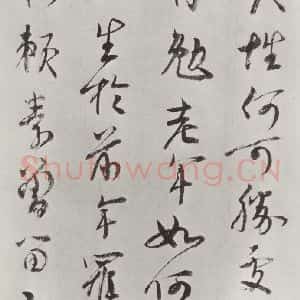 性何可勝
勉老年如何
生於前年罹
頼素習留
Shufawang.CN